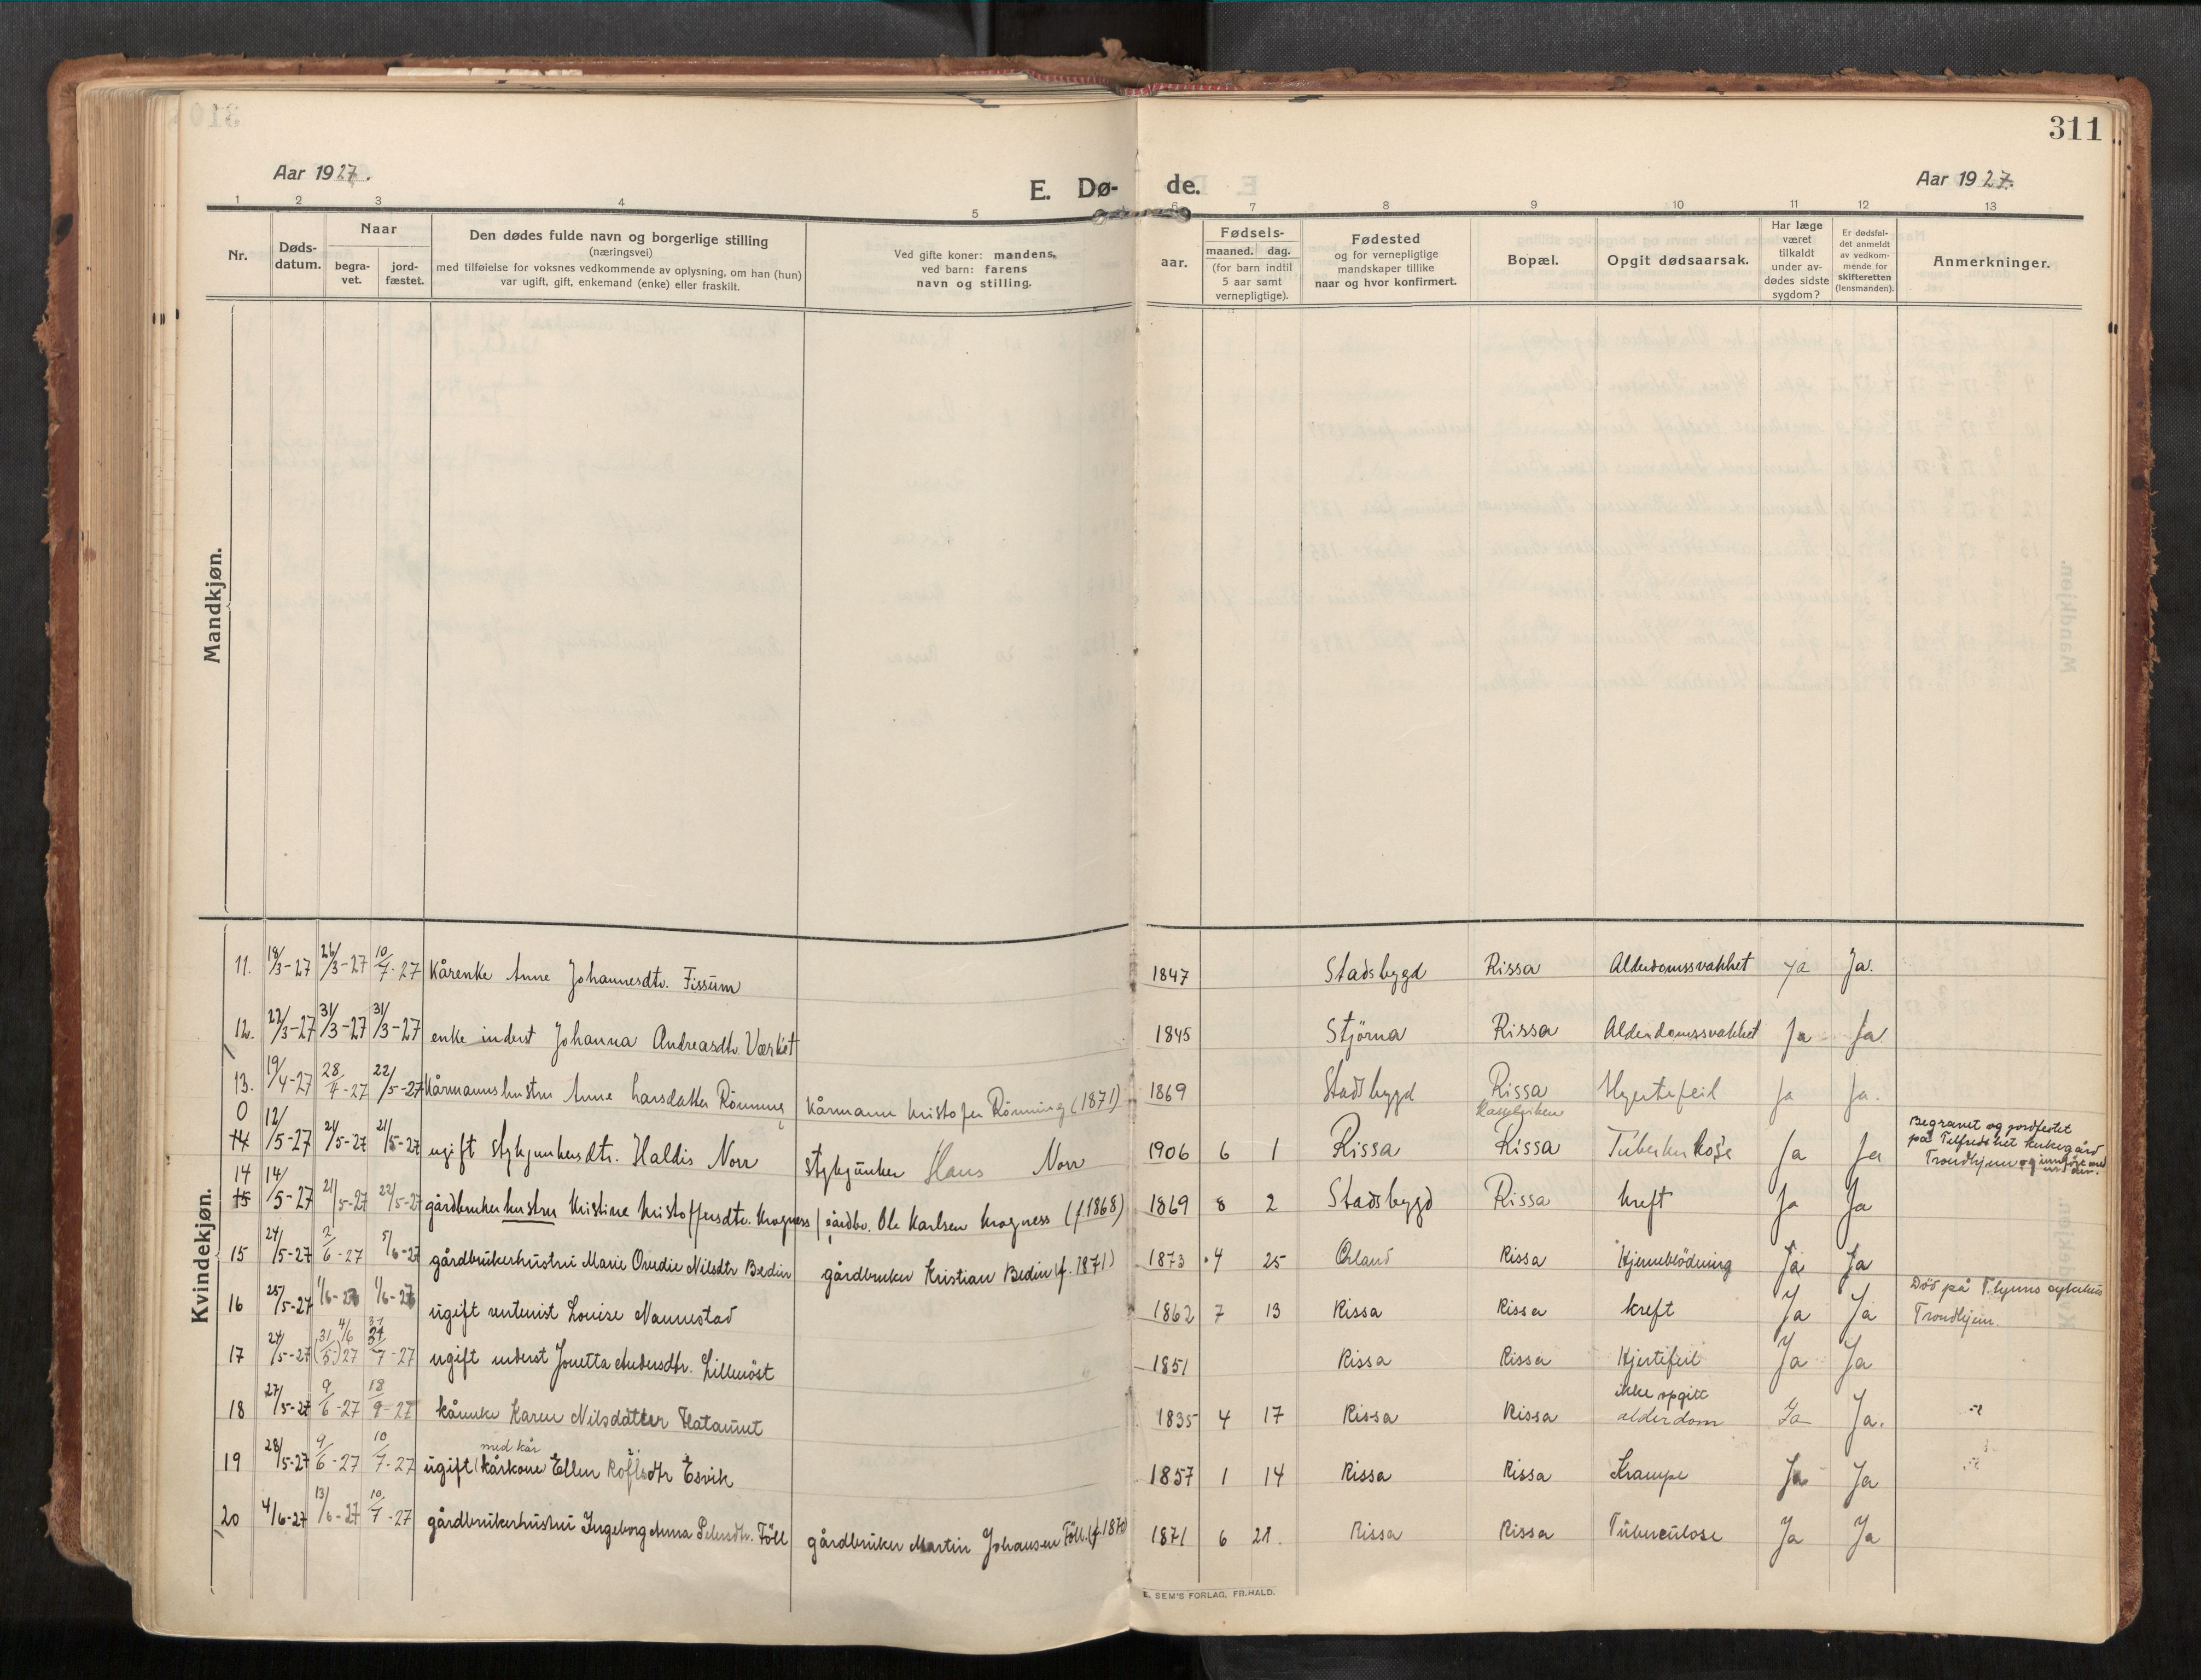 311
Aar 1927.
E. Dø-de.
Aar 1927.
1 2 3 4 5 6 7 8 9 10 11 12 13
Nr.
Døds-
datum.
Naar
begra-
vet.
jord-
fæstet.
Den dødes fulde navn og borgerlige stilling
(næringsvei)
med tilføielse for voksnes vedkommende av oplysning, om han (hun)
var ugift, gift, enkemand (enke) eller fraskilt.
Ved gifte koner: mandens,
ved barn: farens
navn og stilling.
Fødsels-
aar.
maaned. dag.
(for barn indtil
5 aar samt
vernepligtige).
Fødested
og for vernepligtige
mandskaper tillike
naar og hvor konfirmert.
Bopæl.
Opgit dødsaarsak.
Har læge
været
tilkaldt
under av-
dødes sidste
sygdom?
Er dødsfal-
det anmeldt
av vedkom-
mende for
skifteretten
(lensmanden).
Anmerkninger.
Mandkjøn.
Kvindekjøn.
11. 18/3-27 26/3-27 10/7-27 Kårenke Anne Johannesdtr. Fissum 1847 Stadsbygd Rissa Alderdomssvakhet Ja Ja.
12. 22/3-27 31/3-27 31/3-27 enke inderst Johanna Andreasdtr. Værket 1845 Stjørna Rissa Alderdomssvakhet Ja Ja
13. 19/4-27 28/4-27 22/5-27 Kårmannshustru Anne Larsdatter Rönning Kårmann Kristofer Rönning (1871) 1869 Stadsbygd Rissa Hjertefeil Ja Ja.
0 14 12/5-27 21/5-27 21/5-27 ugift stykjunkersdtr. Haldis Norr stykjunker Hans Norr 1906 6 1 Rissa Rissa Tuberkulose Ja Ja Begravet og jordfestet
på Tilfredshet kirkegård
Trondhjem
14 15 14/5-27 21/5-27 22/5-27 gårdbrukerhustru Kristine Kristoffersdtr. Kragness gårdbr. Ole Karlsen Kragness (f 1868) 1869 8 2 Stadsbygd Rissa kreft Ja Ja
15 24/5-27 2/6-27 5/6-27 gårdbrukerhustru Marie Ovedie Nilsdtr Bedin gårdbruker Kristian Bedin (f. 1871) 1873 4 25 Ørland Rissa Hjerneblödning Ja Ja
16 25/5-27 1/6-27 1/6-27 ugift rentenist Louise Nannestad 1862 7 13 Rissa Rissa kreft Ja Ja Död på T.hjems sykehus
Trondhjem.
17 24/5-27 (31/5) 4/6 27 31/7-27 ugift inderst Jonetta Andersdtr. Lilleröst 1851 Rissa Rissa Hjertefeil Ja Ja
18 27/5-27 9/6-27 18/9-27 kårenke Karen Nilsdatter Hatamrt 1835 4 17 Rissa Rissa ikke opgitt
alderdom Ja Ja.
19 28/5-27 9/6-27 10/7-27 ugift (kårkone) med kår Ellen Rofsdtr Esvik 1857 1 14 Rissa Rissa Krampe Ja Ja
20 4/6-27 13/6-27 10/7-27 gårdbrukerhustru Ingeborg Anna Pedersdtr. Föll gårdbruker Martin Johansen Föll (f. 1870) 1871 6 21. Rissa Rissa Tuberculose Ja Ja
E. SEM'S FORLAG, FR.HALD.